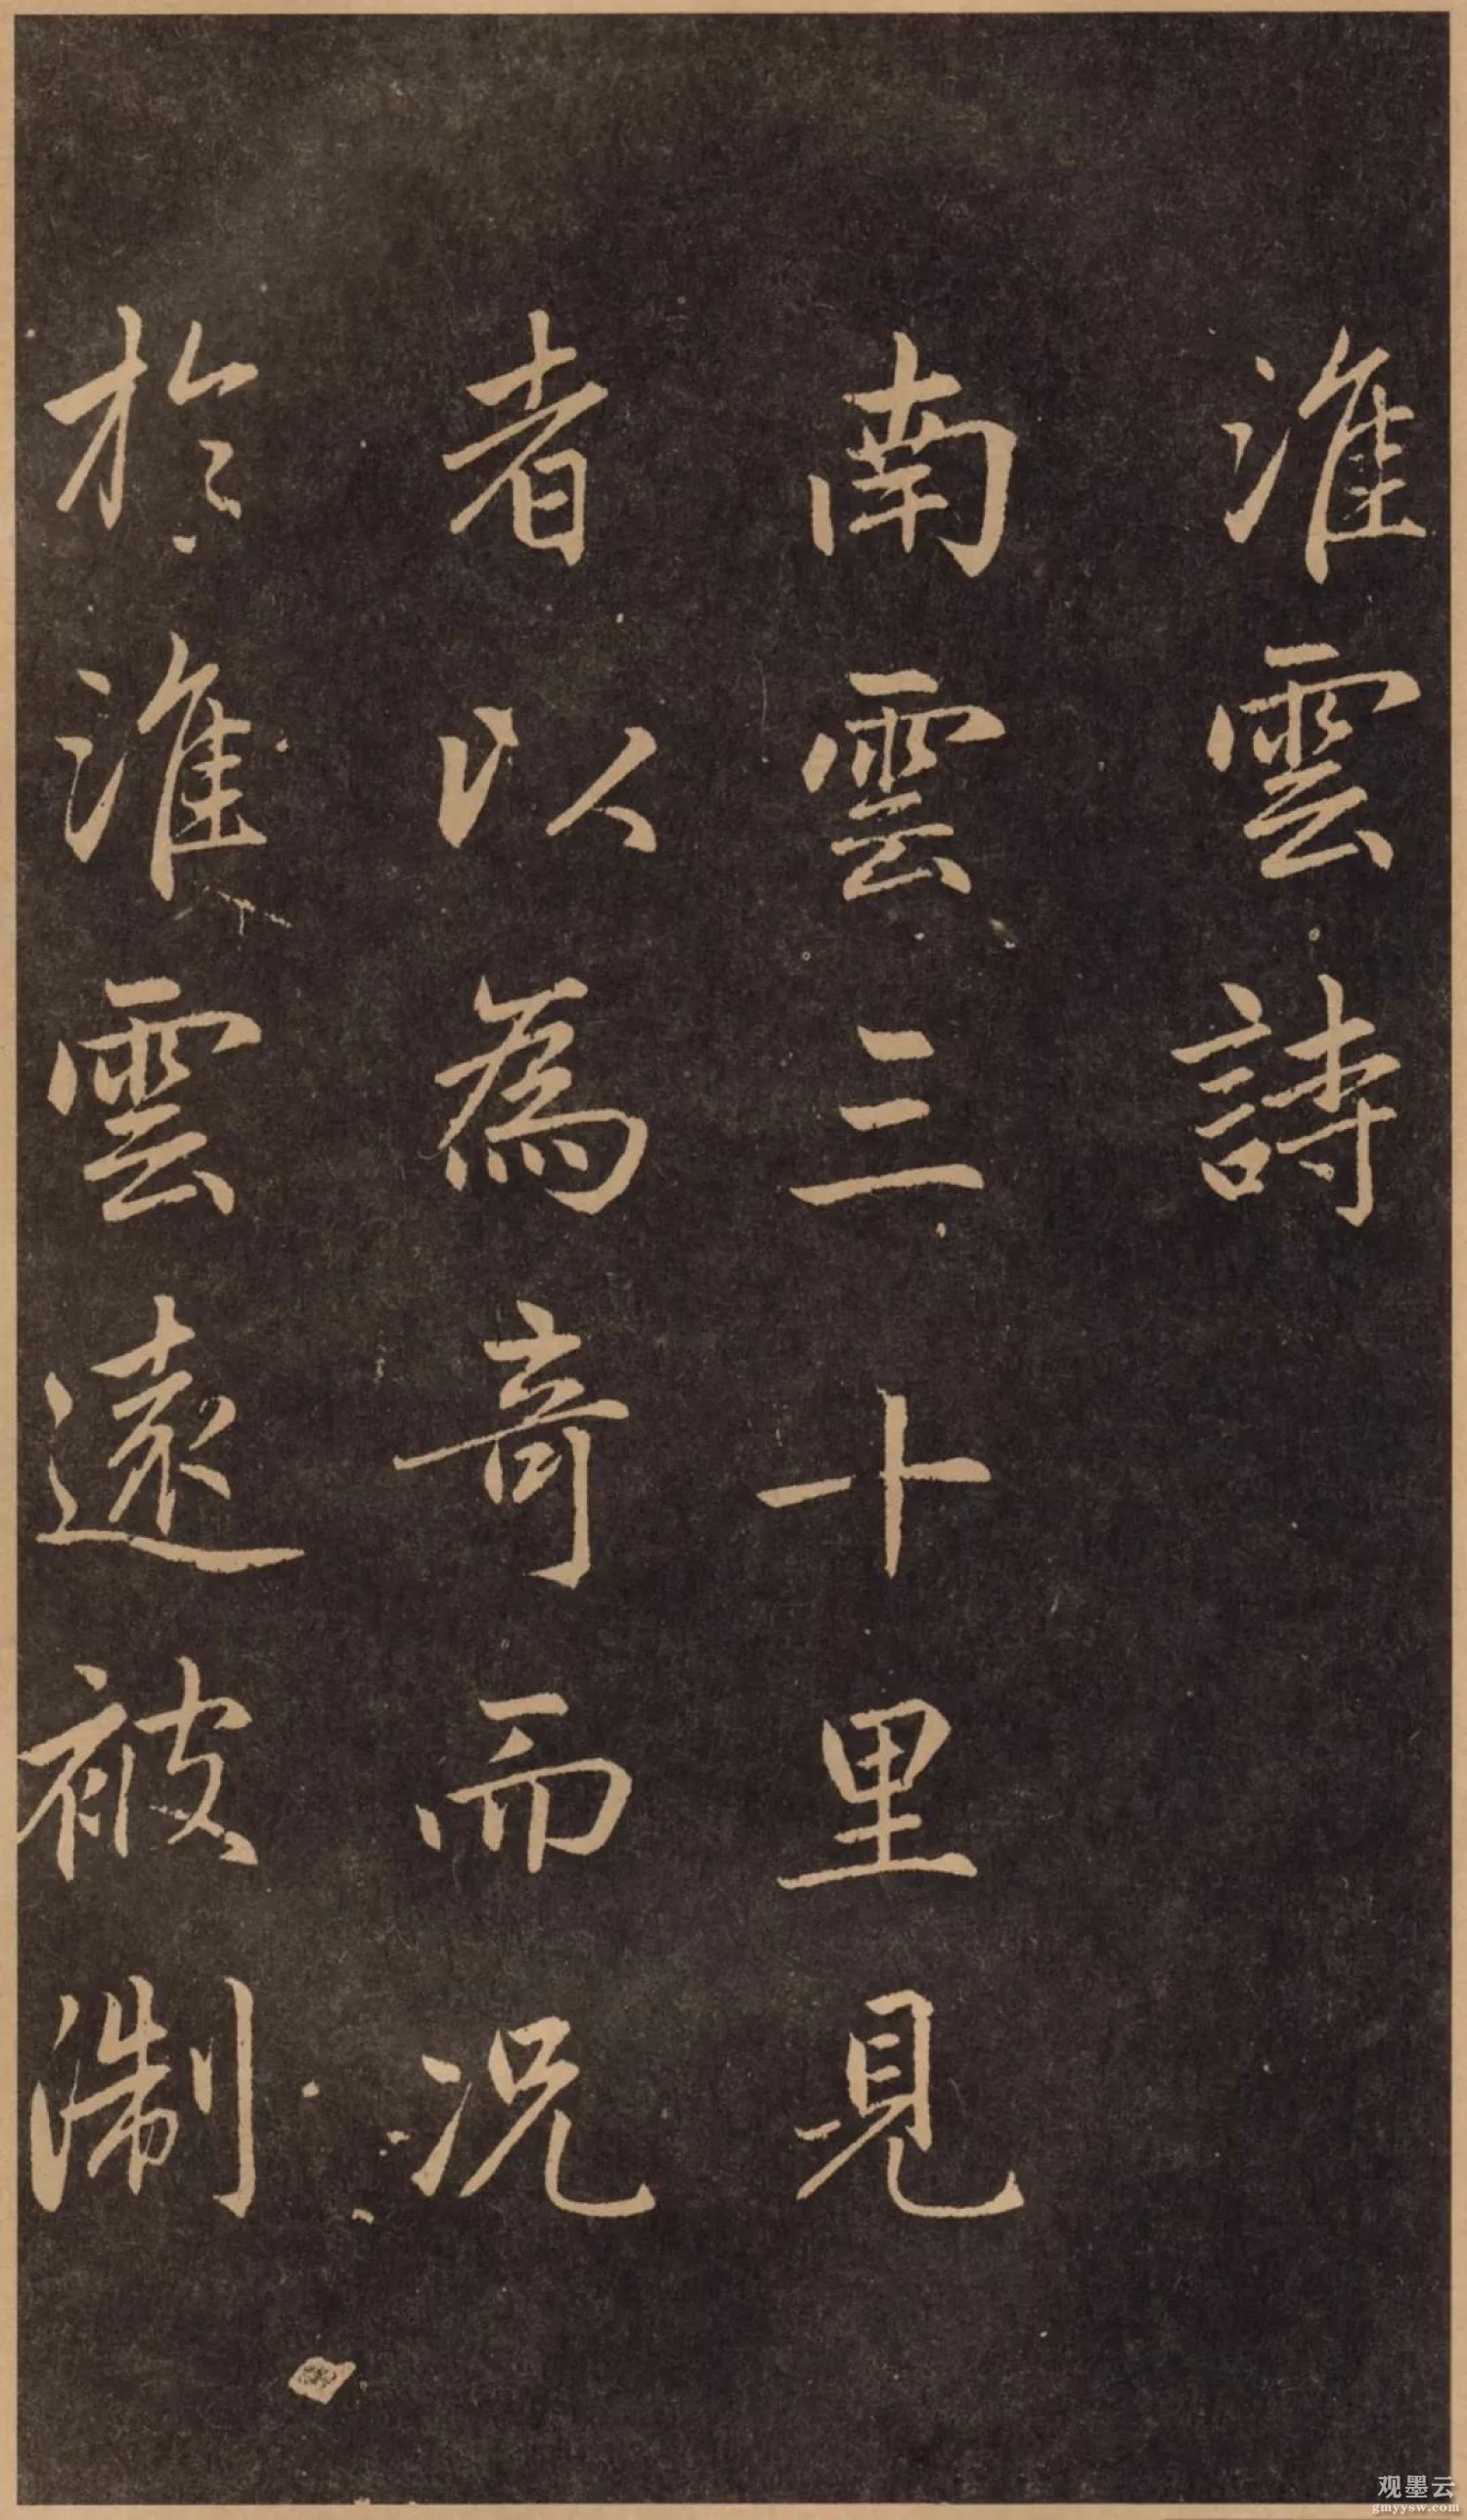 淮雲詩
南雲三十里見
者以為奇而況
於淮雲遠被淛
观墨云
gmyysw.com